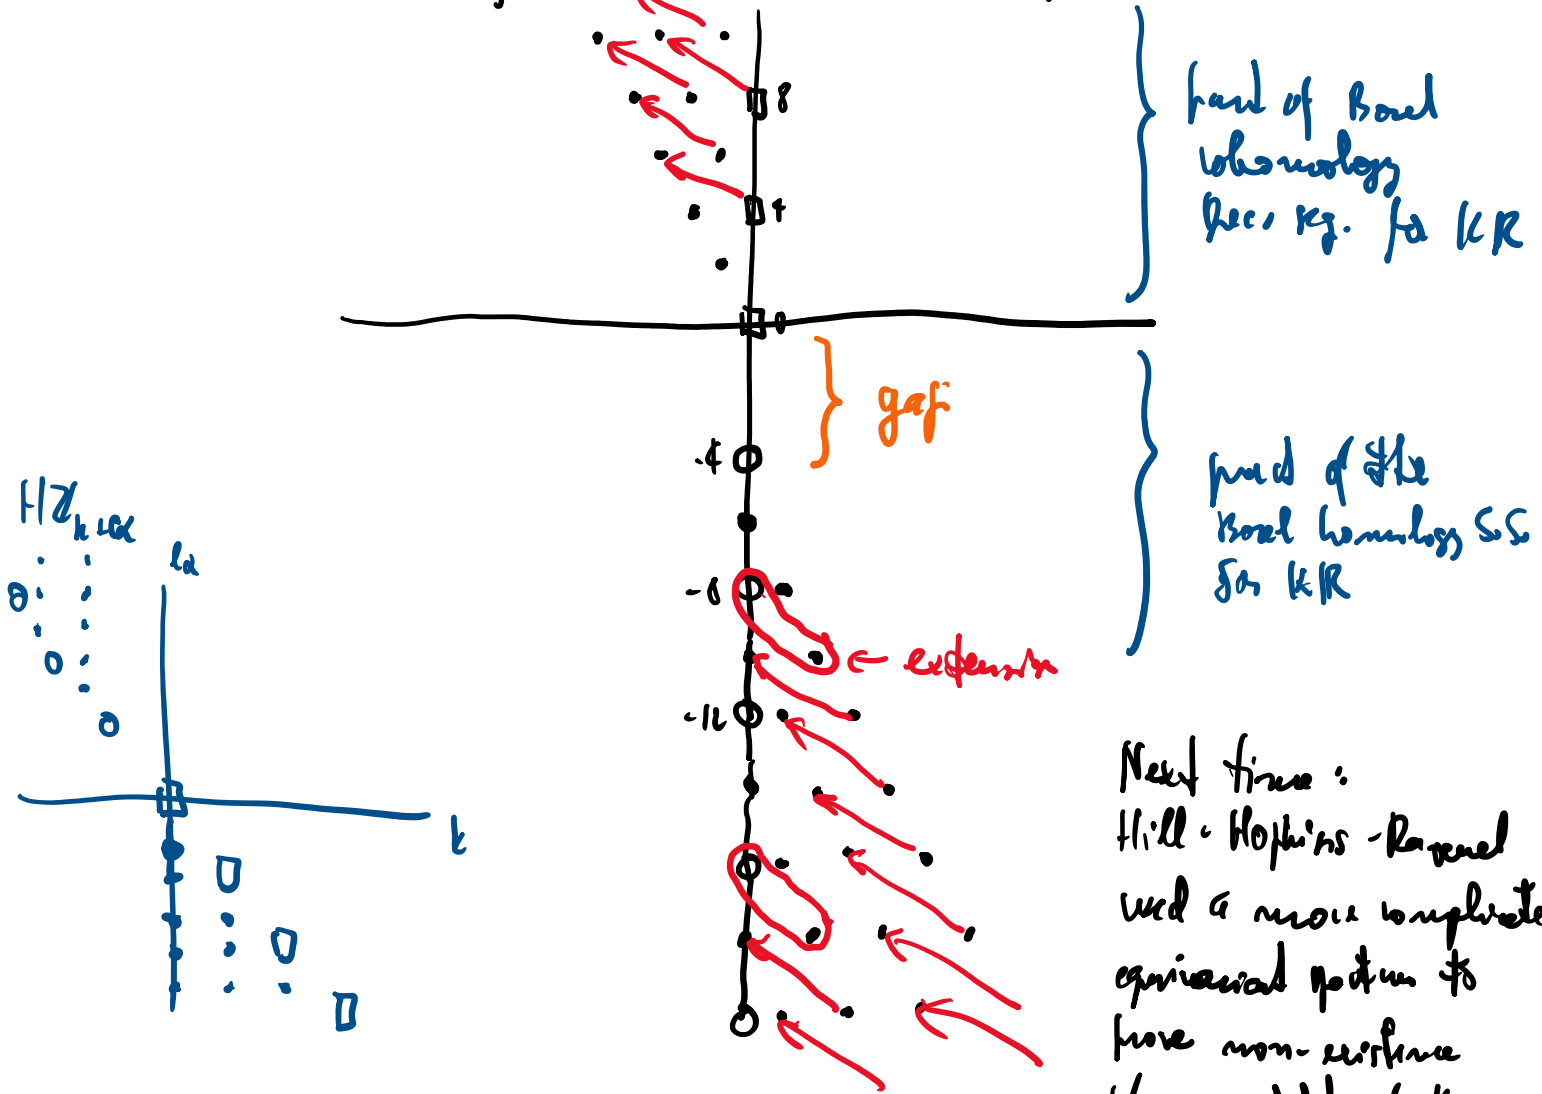 8
part of Borel
cohomology
spec. seq. for KR
4
0
gap
-4
part of the
Borel homology S.S.
for KR
HZ
k+lα
lα
-8
← extension
-12
k
Next time:
Hill-Hopkins-Ravenel
used a more complicate
equivariant pattern to
prove non-existence